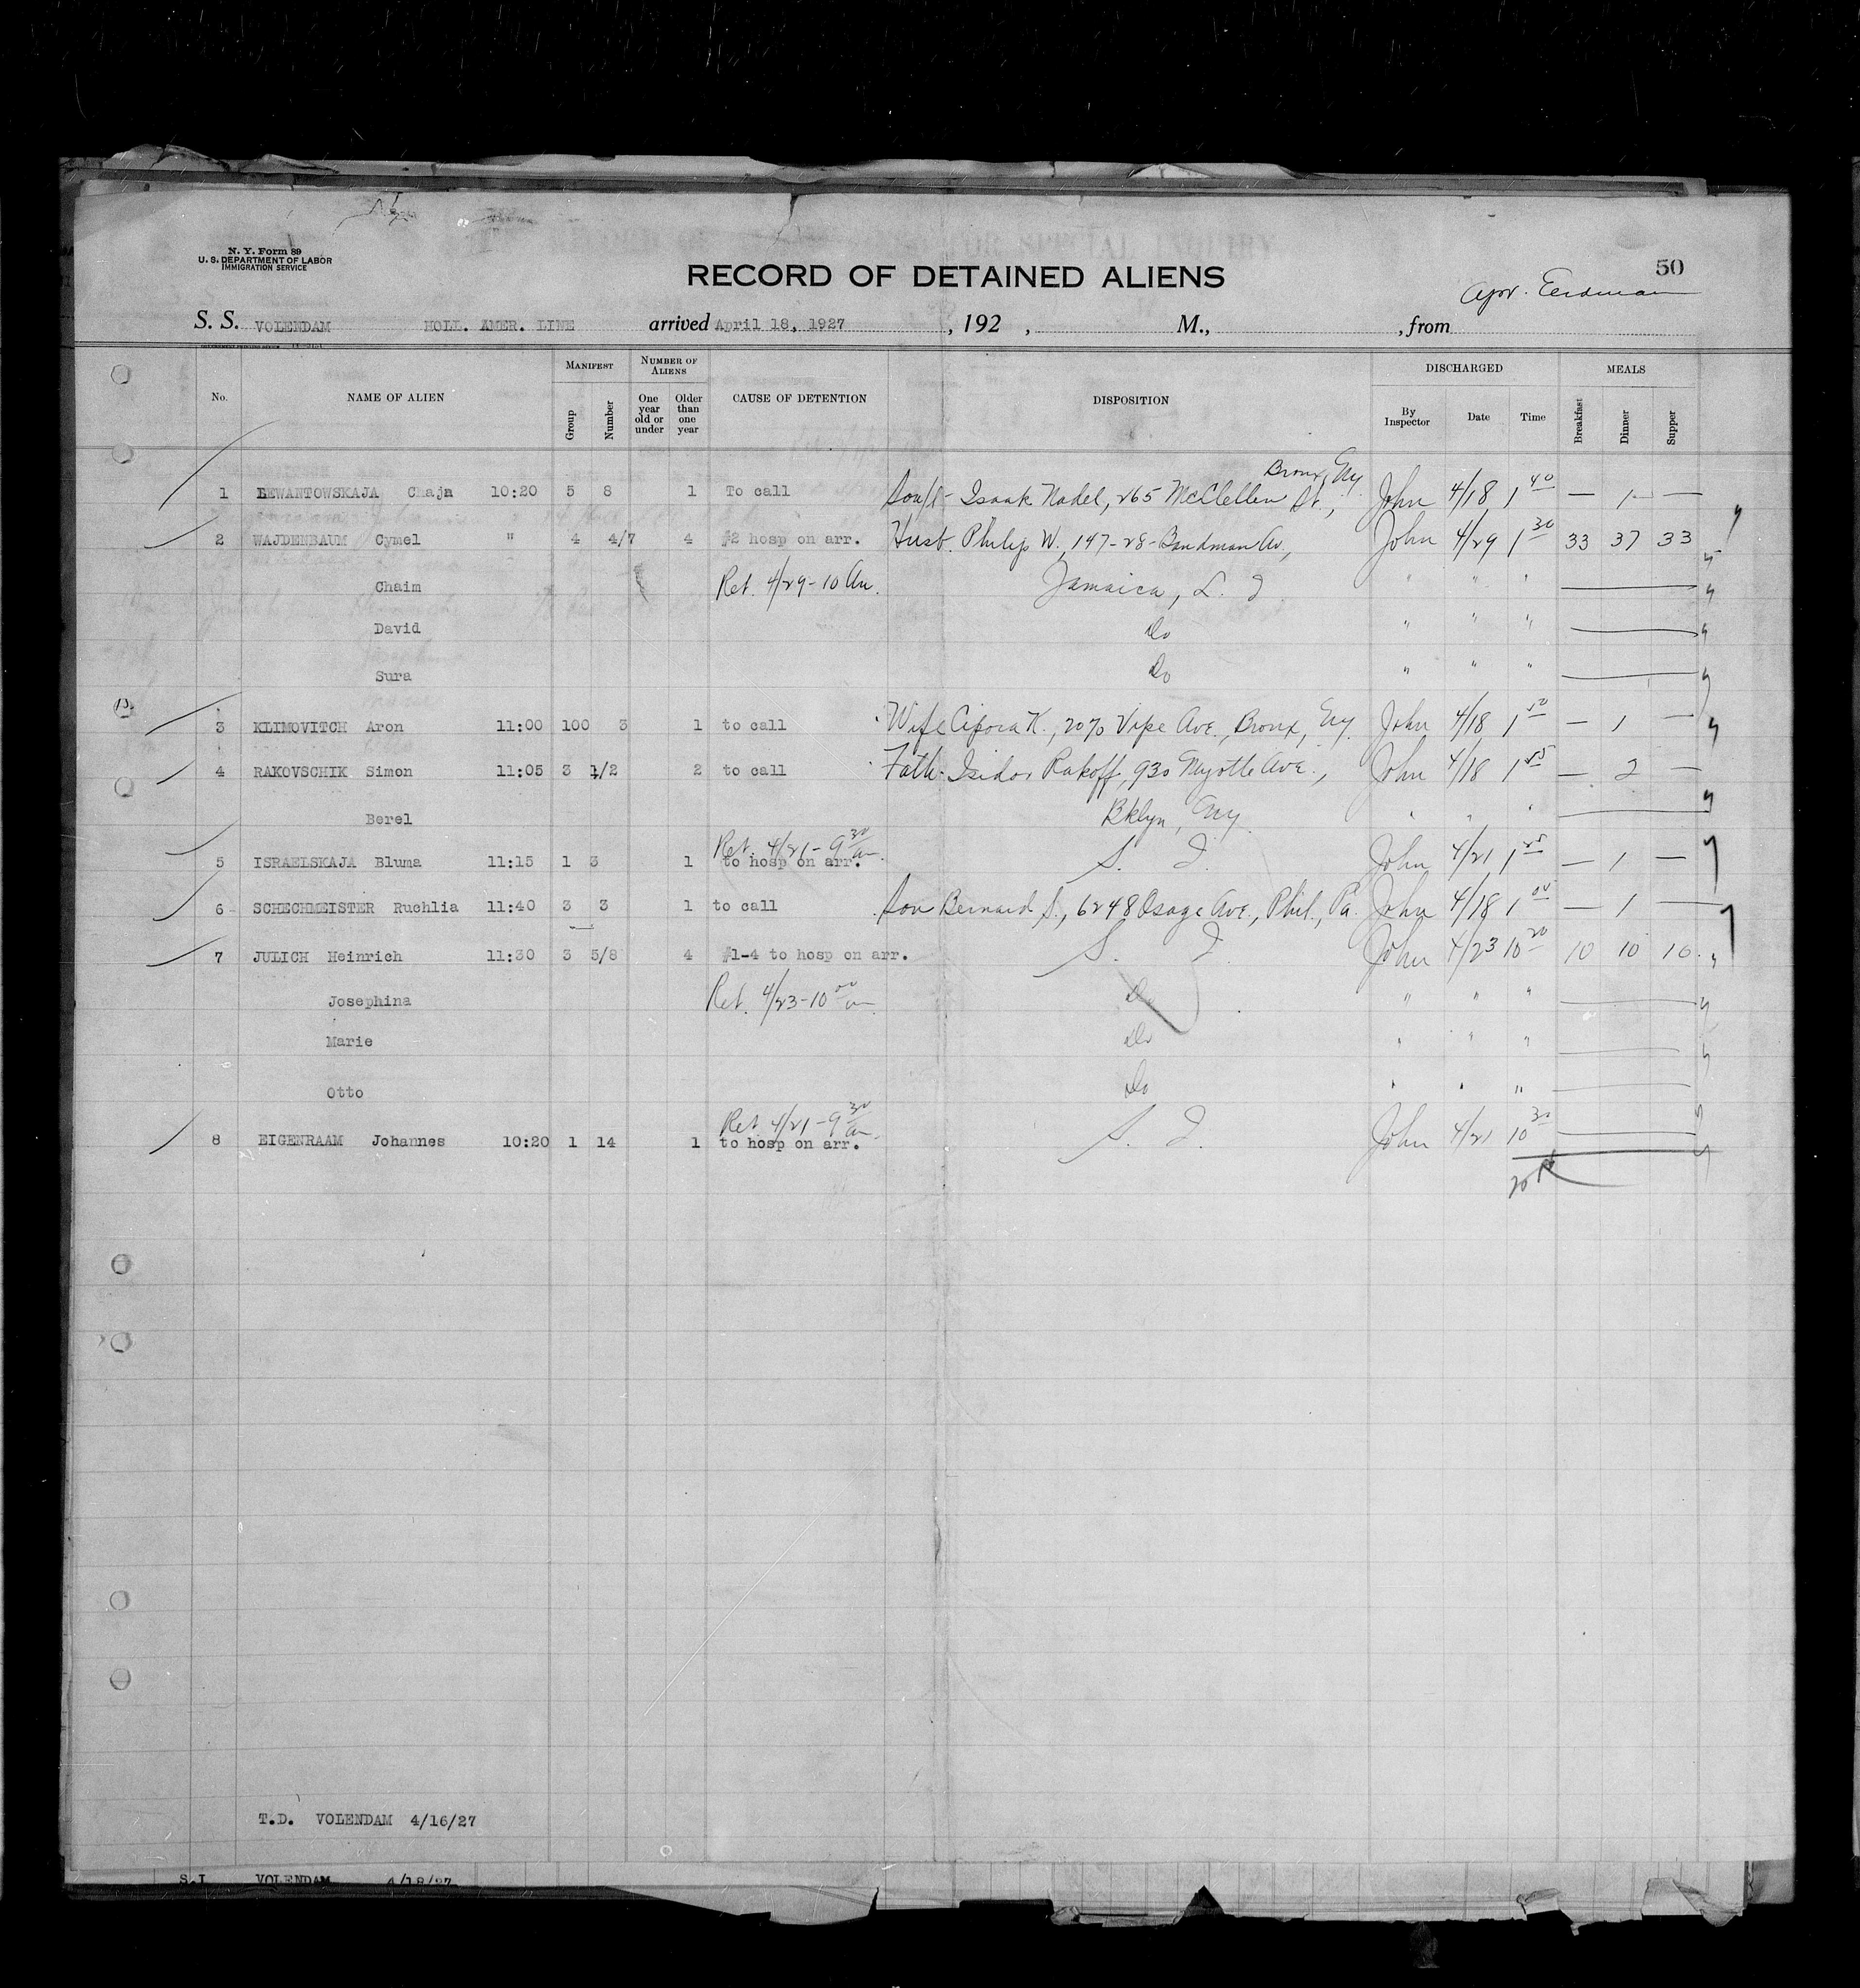 N. Y. Form 89
U. S. DEPARTMENT OF LABOR
IMMIGRATION SERVICE
50
RECORD OF DETAINED ALIENS
S. S. VOLENDAM HOLL. AMER. LINE arrived April 18, 1927, 192 , M., , from
No. NAME OF ALIEN MANIFEST NUMBER OF ALIENS CAUSE OF DETENTION DISPOSITION DISCHARGED MEALS
Group Number One year old or under Older than one year By Inspector Date Time Breakfast Dinner Supper
Bronx, Ny
1 LEWANTOWSKAJA Chaja 10:20 5 8 1 To call Isaak Nadel, 265 McClellen St., John 4/18 1 40 — 1 —
2 WAJDENBAUM Cymel " 4 4/7 4 #2 hosp on arr. Husb. Philip W. 147-28- Av, John 4/29 1 30 33 37 33
Chaim Ret. 4/29-10 Am. Jamaica, L. I " " "
David Do " " "
Sura Do " " "
3 KLIMOVITCH Aron 11:00 100 3 1 to call Wife Cipora K., 2070 Vyse Ave., Bronx, Ny John 4/18 1 50 — 1 —
4 RAKOVSCHIK Simon 11:05 3 1/2 2 to call Fath. Isidor Rakoff, 930 Myrtle Ave., John 4/18 1 55 — 2 —
Berel Bklyn, Ny " " "
Ret. 4/21-9 30 am.
5 ISRAELSKAJA Bluma 11:15 1 3 1 to hosp on arr. S. I. John 4/21 1 25 — 1 —
6 SCHECHMEISTER Ruchlia 11:40 3 3 1 to call Son Bernard S., 6248 Osage Ave., Phil., Pa. John 4/18 1 00 — 1 —
7 JULICH Heinrich 11:30 3 5/8 4 #1-4 to hosp on arr. S. I. John 4/23 10 20 10 10 10
Josephina Ret. 4/23-10 00 am Do " " "
Marie Do " " "
Otto Do " " "
Ret. 4/21-9 30 am.
8 EIGENRAAM Johannes 10:20 1 14 1 to hosp on arr. S. I. John 4/21 10 30
T.D. VOLENDAM 4/16/27
S.I VOLENDAM 4/18/27